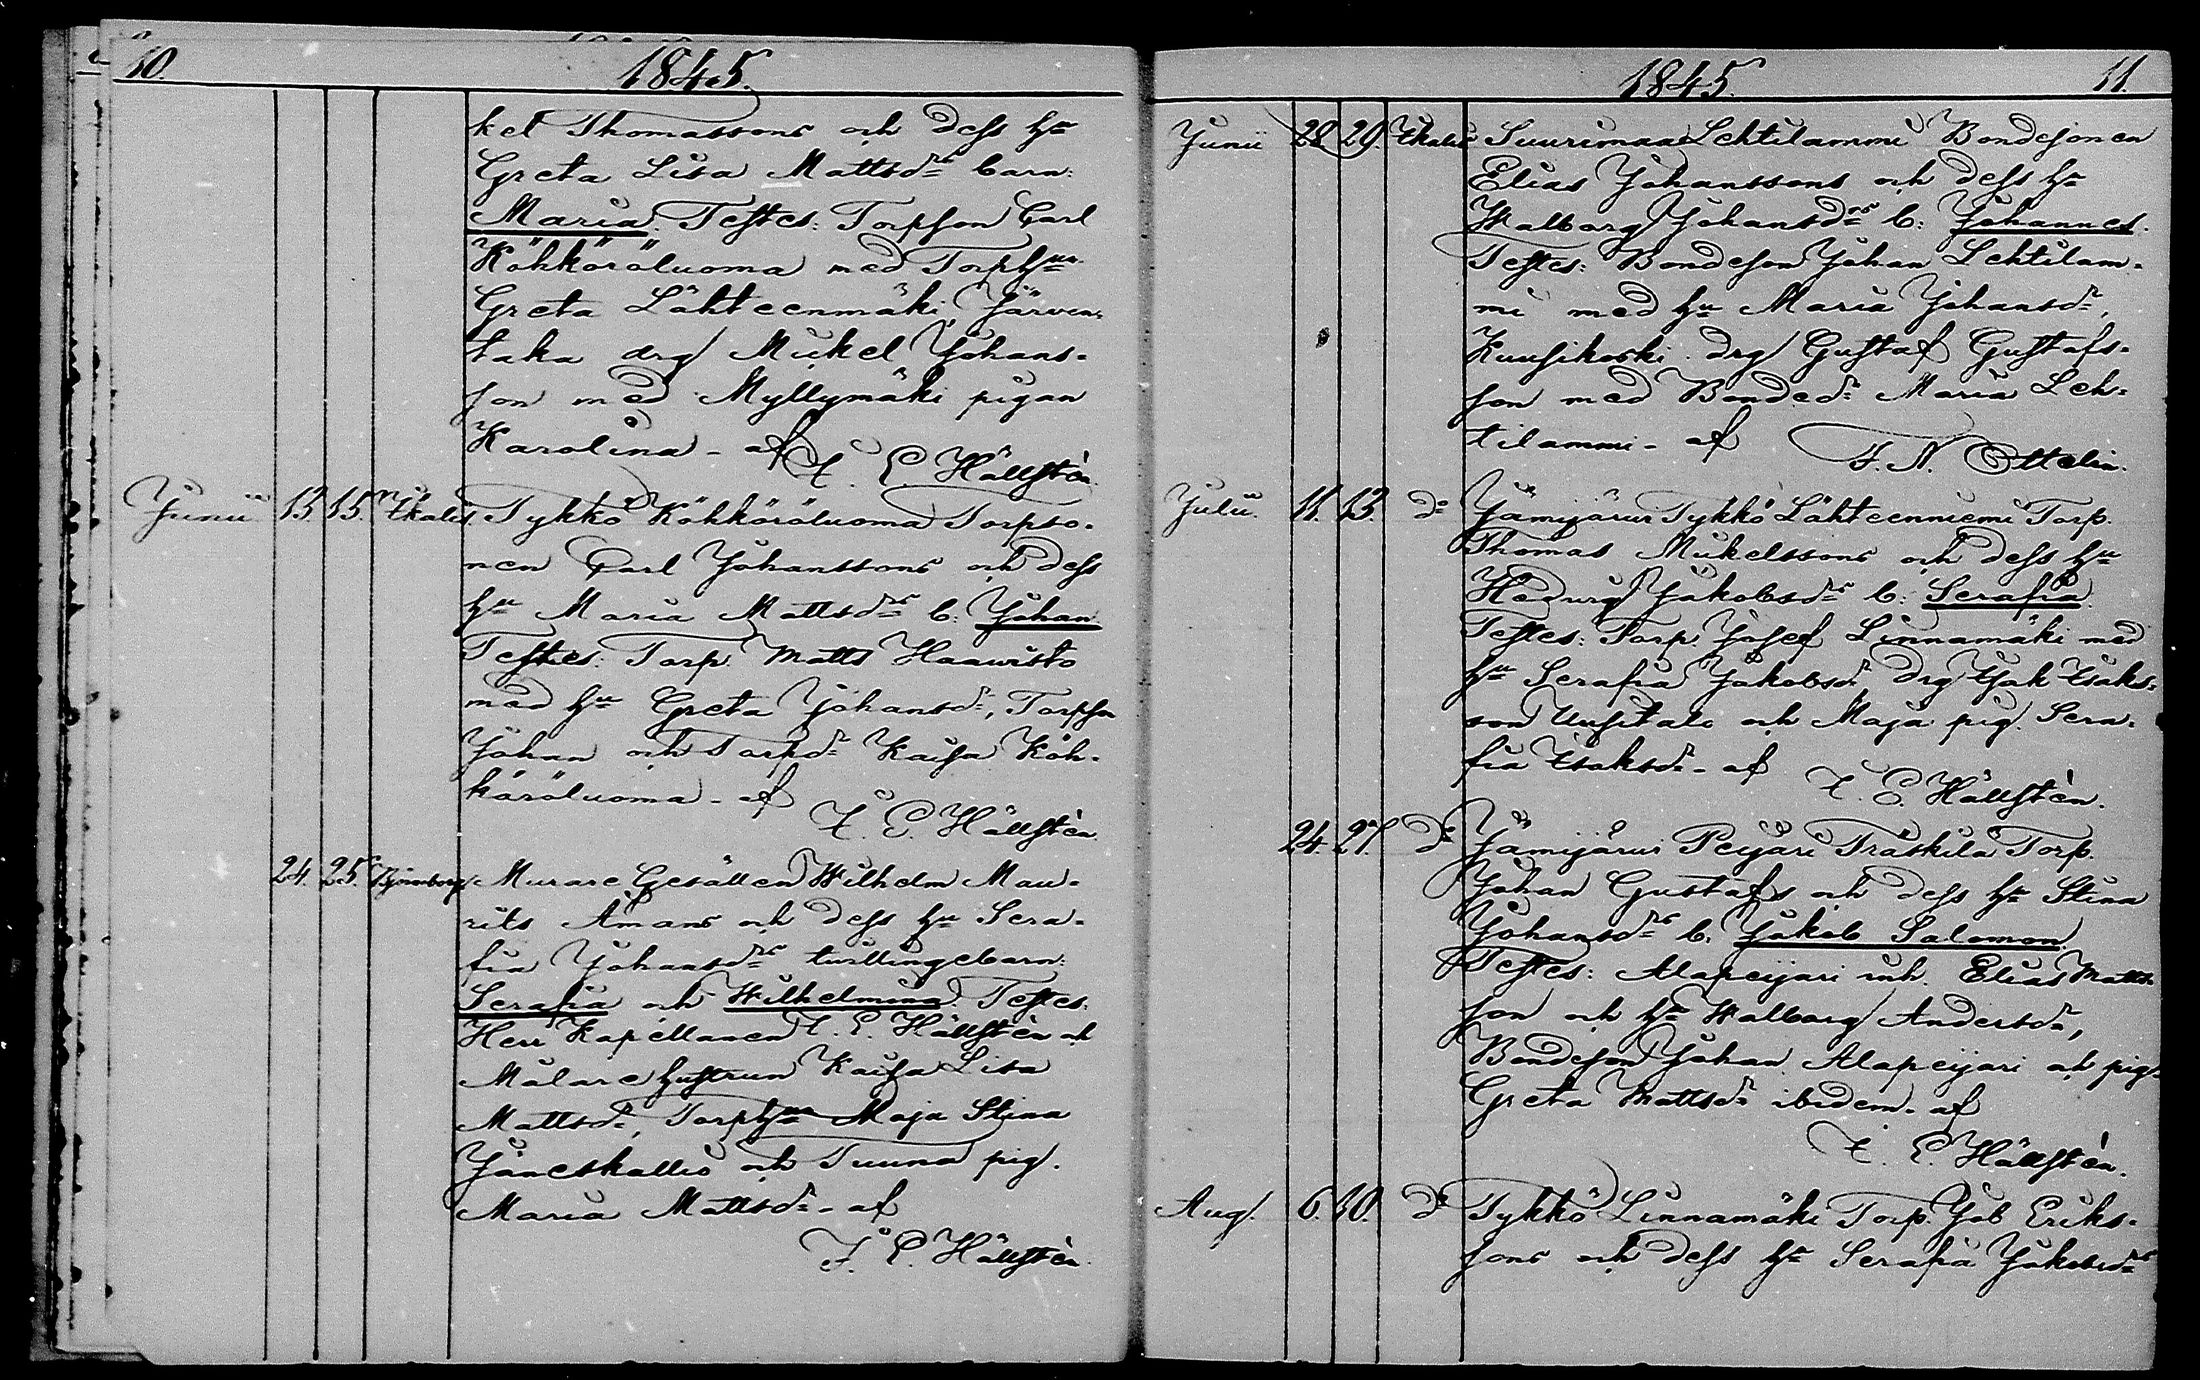 10.
1845.
kel Thomassons och dess hu
Greta Lisa Mattsdrs barn:
Maria. Testes: Torpson Carl
Köhköröluoma med Torphun
Greta Lähteenmäki, Järven-
taka drg Mickel Johans-
son med Myllymäki pigan
Karolina - af
F. E. Hällstén.
Junii 13. 15. Ikalis Tykkö Köhköröluoma Torpso-
nen Carl Johanssons och dess
hu Maria Mattsdrs b: Johan
Testes: Torp. Matts Haavisto
med hu Greta Johansdr, Torpson
Johan och Torpdr Kaisa Köh-
köröluoma - af
F. E. Hällstén.
24. 25. Björneborg Murare Gesällen Wilhelm Mau-
rits Åmans och dess hu Sera-
fia Johansdrs tvillingebarn:
Serafia och Wilhelmina Testes:
Herr Kapellanen F. E. Hällstén och
Målare hustrun Kaisa Lisa
Mattsdr, Torphun Maja Stina
Jäneskallio och Tuuna pig.
Maria Mattsdr - af
F. E. Hällstén.
1845.
11.
Junii 28 29. Ikalis Suurimaa Lehtilammi Bondesonen
Elias Johanssons och dess hu
Walborg Johansdrs b: Johannes.
Testes: Bondeson Johan Lehtilam-
mi med hu Maria Johansdr,
Kuusikoski drg Gustaf Gustafs-
son med Bondedr Maria Leh-
tilammi - af
F. N. Ottelin.
Julii. 11. 13. do Jämijärvi Tykkö Lähteenniemi Torp.
Thomas Mickelssons och dess hu
Hedvig Jakobsdrs b: Serafia.
Testes: Torp. Josef Linnamäki med
hu Serafia Jakobsdr drg Isak Isaks-
son Uusitalo och Maja pig. Sera-
fia Isaksdr - af
F. E. Hällstén.
24. 27. do Jämijärvi Peijari Träskilä Torp.
Johan Gustafs och dess hu Stina
Johansdrs b. Jakob Salomon.
Testes: Alapeijari inh. Elias Matts-
son och hu Walborg Andersdr,
Bondeson Johan Alapeijari och pig.
Greta Mattsdr ibidem. af
F. E. Hällstén.
Aug. 6. 10. do Tykkö Linnamäki Torp. Job Eriks-
sons och dess hu Serafia Jakobsdrs